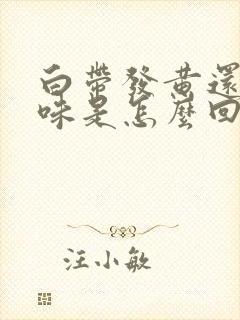 白帶發黄還
味是怎麼回
汪小敏